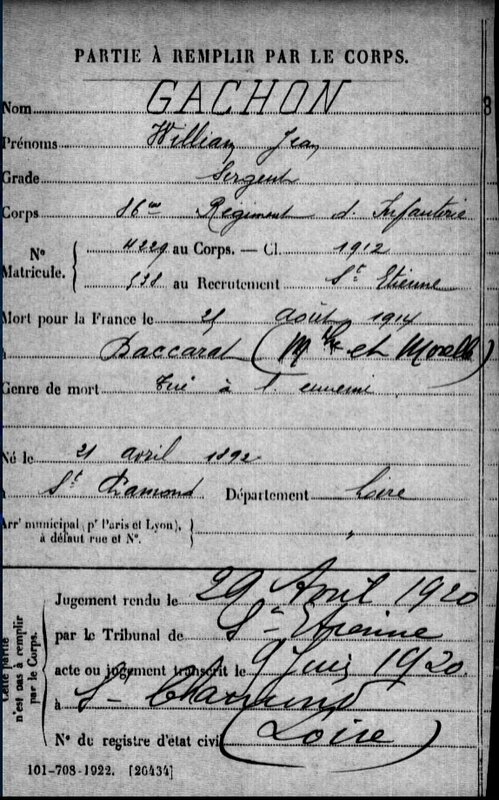 PARTIE À REMPLIR PAR LE CORPS.
Nom GACHON
8
Prénoms William Jean
Grade Sergent
Corps 86me Régiment d'Infanterie
N° Matricule. { 4229 au Corps. — Cl. 1912
538 au Recrutement St Etienne
Mort pour la France le août 1914
à Baccarat (Mthe et Moselle)
Genre de mort Tué à l'ennemi
Né le 21 avril 1892
à St Chamond Département Loire
Arrt municipal (pr Paris et Lyon), à défaut rue et N°. } "
Cette partie n'est pas à remplir par le Corps.
Jugement rendu le 29 Avril 1920
par le Tribunal de St Etienne
acte ou jugement transcrit le 9 Juin 1920
à St Chamond
(Loire)
N° du registre d'état civil
101-708-1922. [26434]